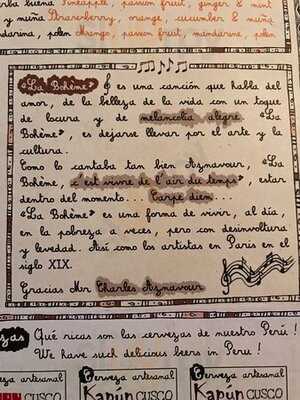 rba buena Pineapple, passion fruit, ginger & mint
y muña Strawberry, orange, cucumber & muña
darina, pólen Mango, passion fruit, mandarine, polen
«La Bohème» es una canción que habla del
amor, de la belleza de la vida con un toque
de locura y de melancolia alegre. «La
Bohème», es dejarse llevar por el arte y la
cultura.
Como lo cantaba tan bien Aznavour, «La
Bohème, c'est vivre de l'air du temps», estar
dentro del momento... Carpe diem...
«La Bohème» es una forma de vivir, al día,
en la pobreza a veces, pero con desenvoltura
y levedad. Así como los artistas en Paris en el
siglo XIX.
Gracias Mir Charles Aznavour
zas Qué ricas son las cervezas de nuestro Perú !
We have such delicious beers in Peru !
eza artesanal Cerveza artesanal Cerveza artesanal
CUSCO Kapún CUSCO Kapún CUSCO